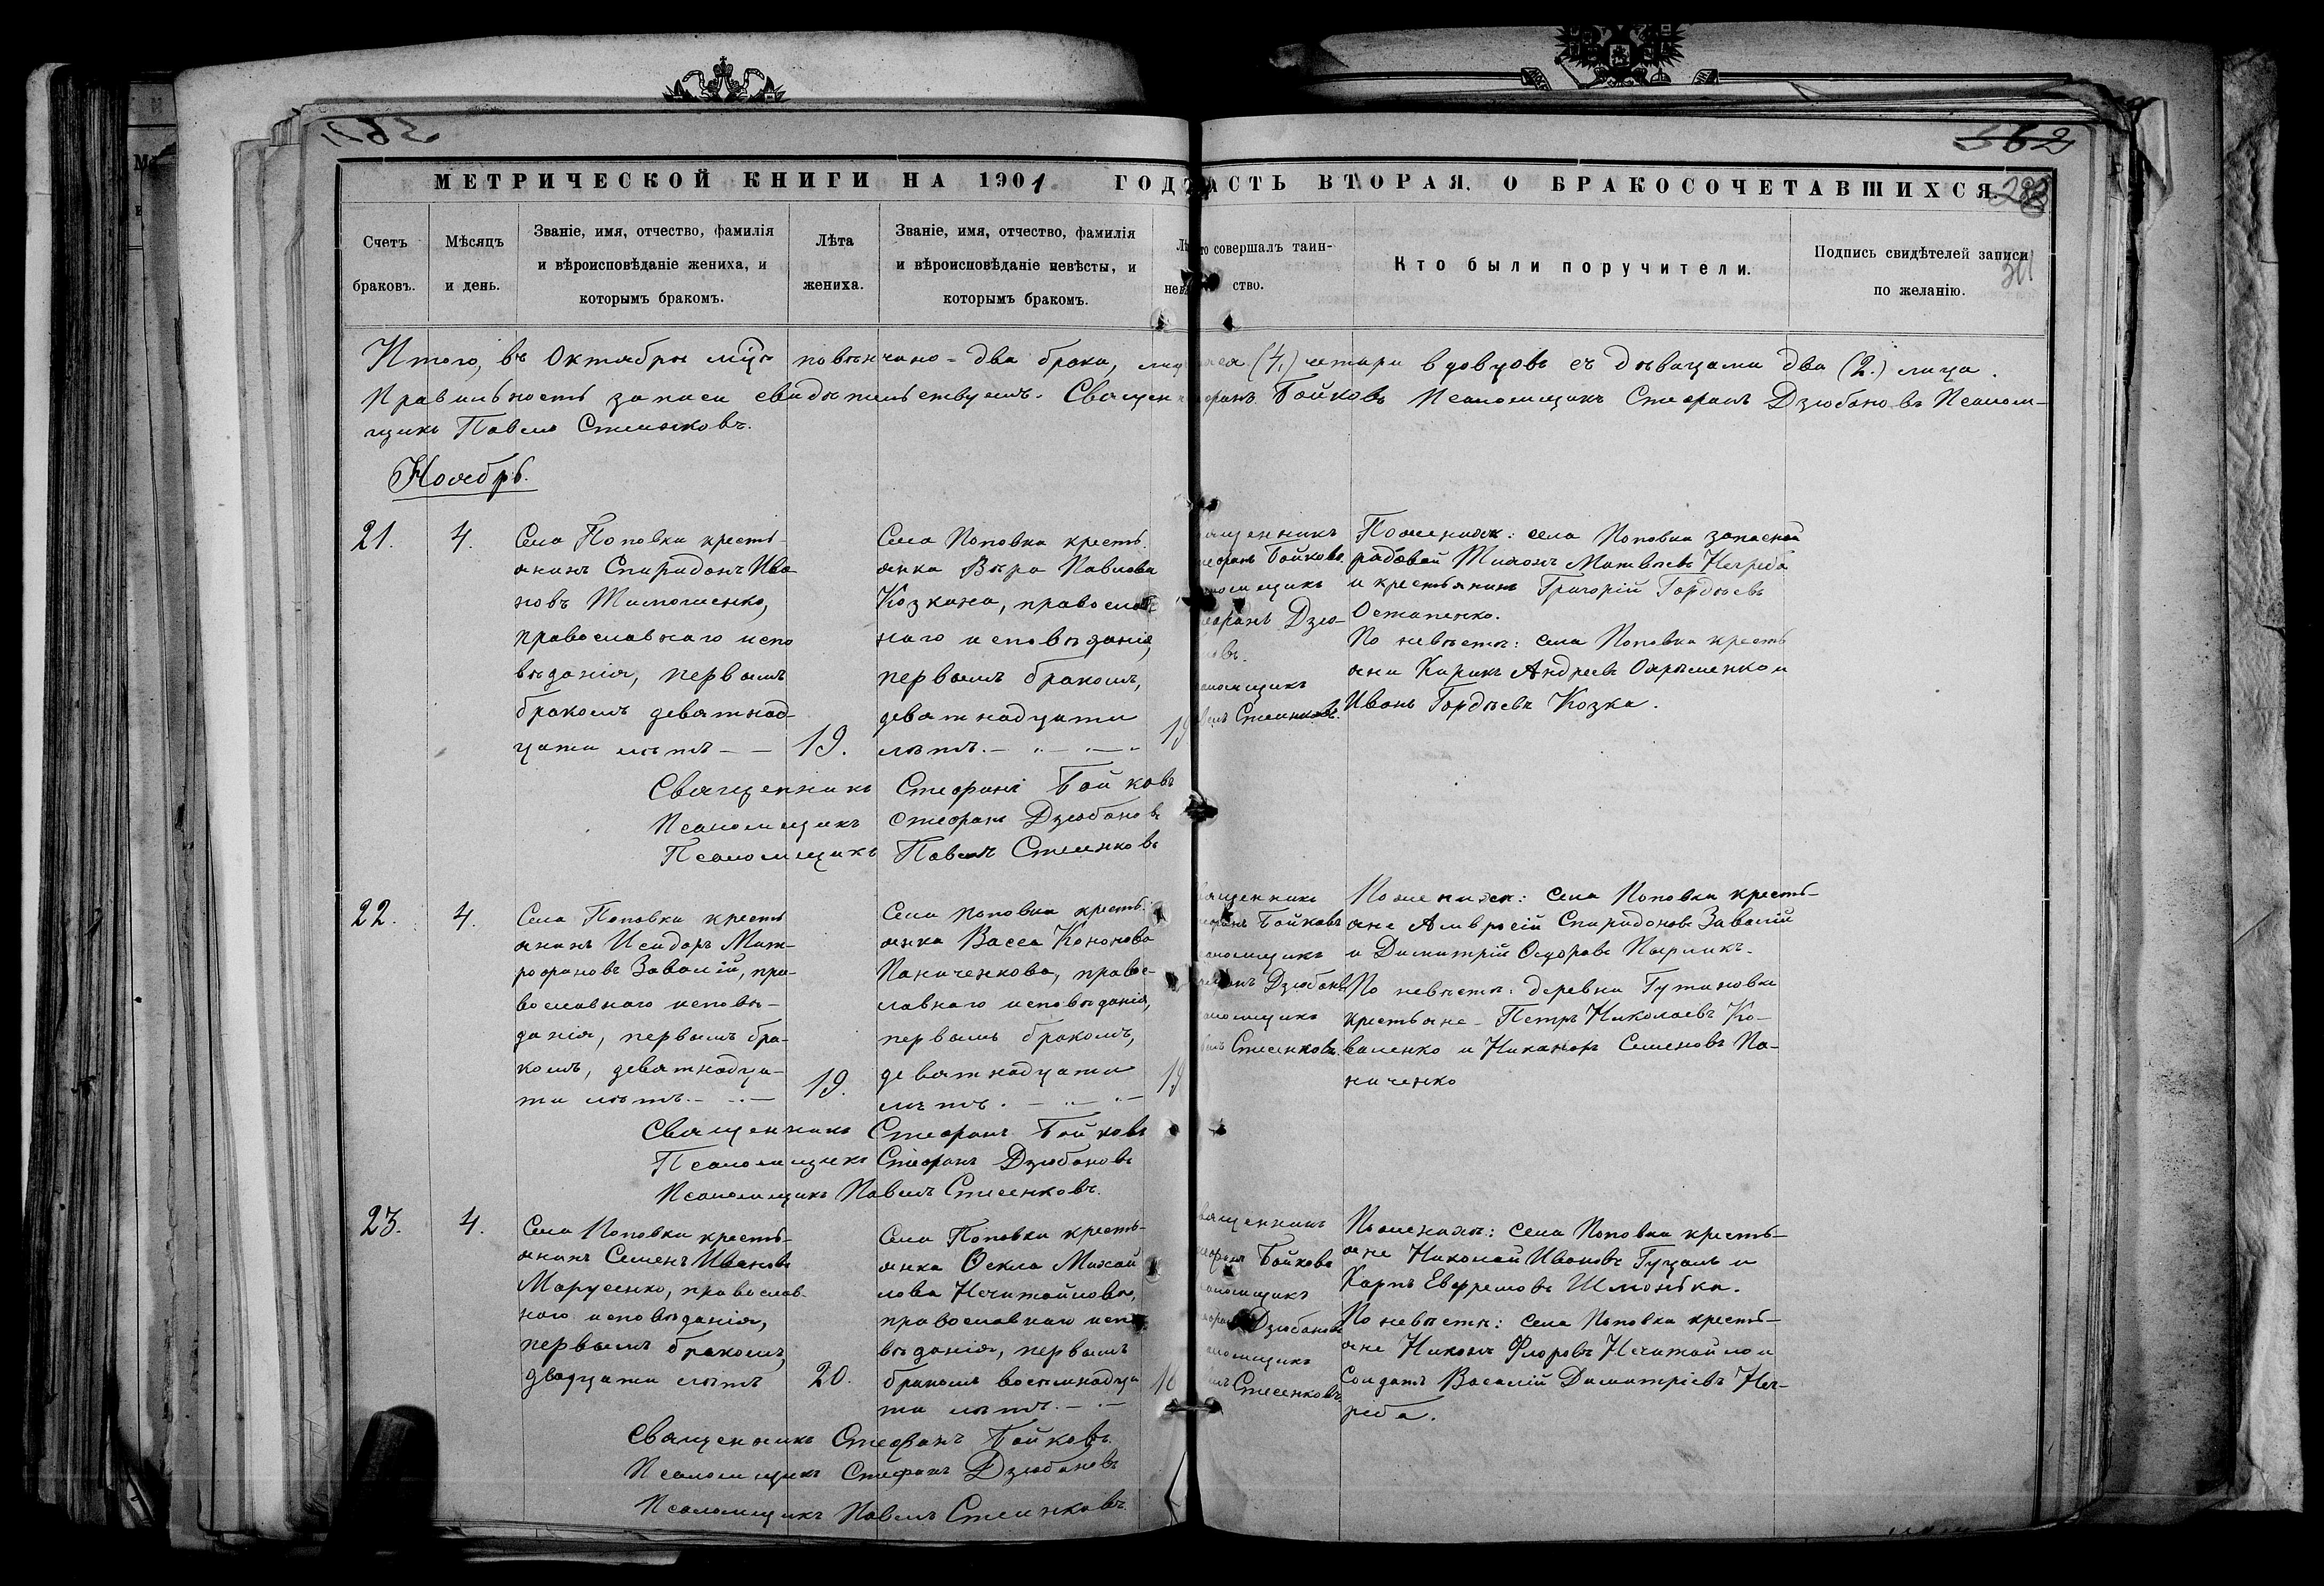 562
МЕТРИЧЕСКОЙ КНИГИ НА 1901 ГОДЪ
ЧАСТЬ ВТОРАЯ. О БРАКОСОЧЕТАВШИХСЯ.
Счетъ браковъ.
Мѣсяцъ и день.
Званіе, имя, отчество, фамилія
и вѣроисповѣданіе жениха, и
которымъ бракомъ.
Лѣта жениха.
Званіе, имя, отчество, фамилія
и вѣроисповѣданіе невѣсты, и
которымъ бракомъ.
то совершалъ таин-
ство.
Кто были поручители.
Подпись свидѣтелей записи
по желанію.
Итого, въ Октябрѣ м-цѣ повѣнчано - два брака, (4) четыри вдовцовъ съ дѣвицами два (2.) лица.
Правильность записи свидѣтельствуемъ. Священ Бойковъ Псаломщикъ Стефанъ Дзюбановъ Псалом-
щикъ Павелъ Стесенковъ.
Ноябрь.
21.
4.
Села Поповки кресть-
янинъ Спиридонъ Ива-
новъ Тимошенко,
православнаго испо
вѣданія, первымъ
бракомъ девятнад-
цати лѣтъ — —
19.
Села Поповки кресть-
янка Вѣра Павлова
Козкина, православ
наго исповѣданія,
первымъ бракомъ,
девятнадцати
лѣтъ. —
19
ященникъ
ефанъ Бойковъ
аломщикъ
ефанъ Дзю-
овъ.
аломщикъ
елъ Стесенковъ.
По женихѣ: села Поповки запасной
рядовой Тихонъ Матвѣевъ Нечреба
и крестьянинъ Григорій Гордѣевъ
Остапенко.
По невѣстѣ: села Поповки кресть
яни Кирикъ Андреевъ Охрѣменко и
Иванъ Гордѣевъ Козка.
Священникъ Стефанъ Бойковъ
Псаломщикъ Стефанъ Дзюбановъ
Псаломщикъ Павелъ Стесенковъ
22.
4.
Села Поповки кресть
янинъ Исидоръ Мит-
рофановъ Заволій, пра-
вославнаго исповѣ-
данія, первымъ бра-
комъ, девятнадца-
ти лѣтъ. —
19.
Села Поповки кресть-
янка Васса Кононова
Паниченкова, правос-
лавнаго исповѣданія,
первымъ бракомъ,
девятнадцати
лѣтъ. —
19
ященникъ
ефанъ Бойковъ
аломщикъ
ефанъ Дзюбановъ
аломщикъ
елъ Стесенковъ.
По женихѣ: села Поповки кресть-
яне Амвросій Спиридоновъ Заволій
и Димитрій Ѳедоровъ
По невѣстѣ: деревни Гутиновки
крестьяне - Петръ Николаевъ Ко-
валенко и Никаноръ Семеновъ Па-
ниченко
Священникъ Стефанъ Бойковъ
Псаломщикъ Стефанъ Дзюбановъ
Псаломщикъ Павелъ Стесенковъ.
23.
4.
Села Поповки кресть-
янинъ Семенъ Ивановъ
Марусенко, православ-
наго исповѣданія,
первымъ бракомъ,
двадцати лѣтъ
20.
Села Поповки кресть-
янка Ѳекла Михай
лова Нечитайлова,
православнаго испо
вѣданія, первымъ
бракомъ восемнадца
ти лѣтъ. —
ященникъ
ефанъ Бойковъ
аломщикъ
ефанъ Дзюбановъ
аломщикъ
елъ Стесенковъ.
По женихѣ: села Поповки кресть-
яне Николай Ивановъ Гуцалъ и
Карпъ Евфремовъ Шмонька.
По невѣстѣ: села Поповки кресть-
яне Никонъ Флоровъ Нечитайло и
Солдатъ Василій Димитріевъ Неч-
реба.
Священникъ Стефанъ Бойковъ.
Псаломщикъ Стефанъ Дзюбановъ
Псаломщикъ Павелъ Стесенковъ.